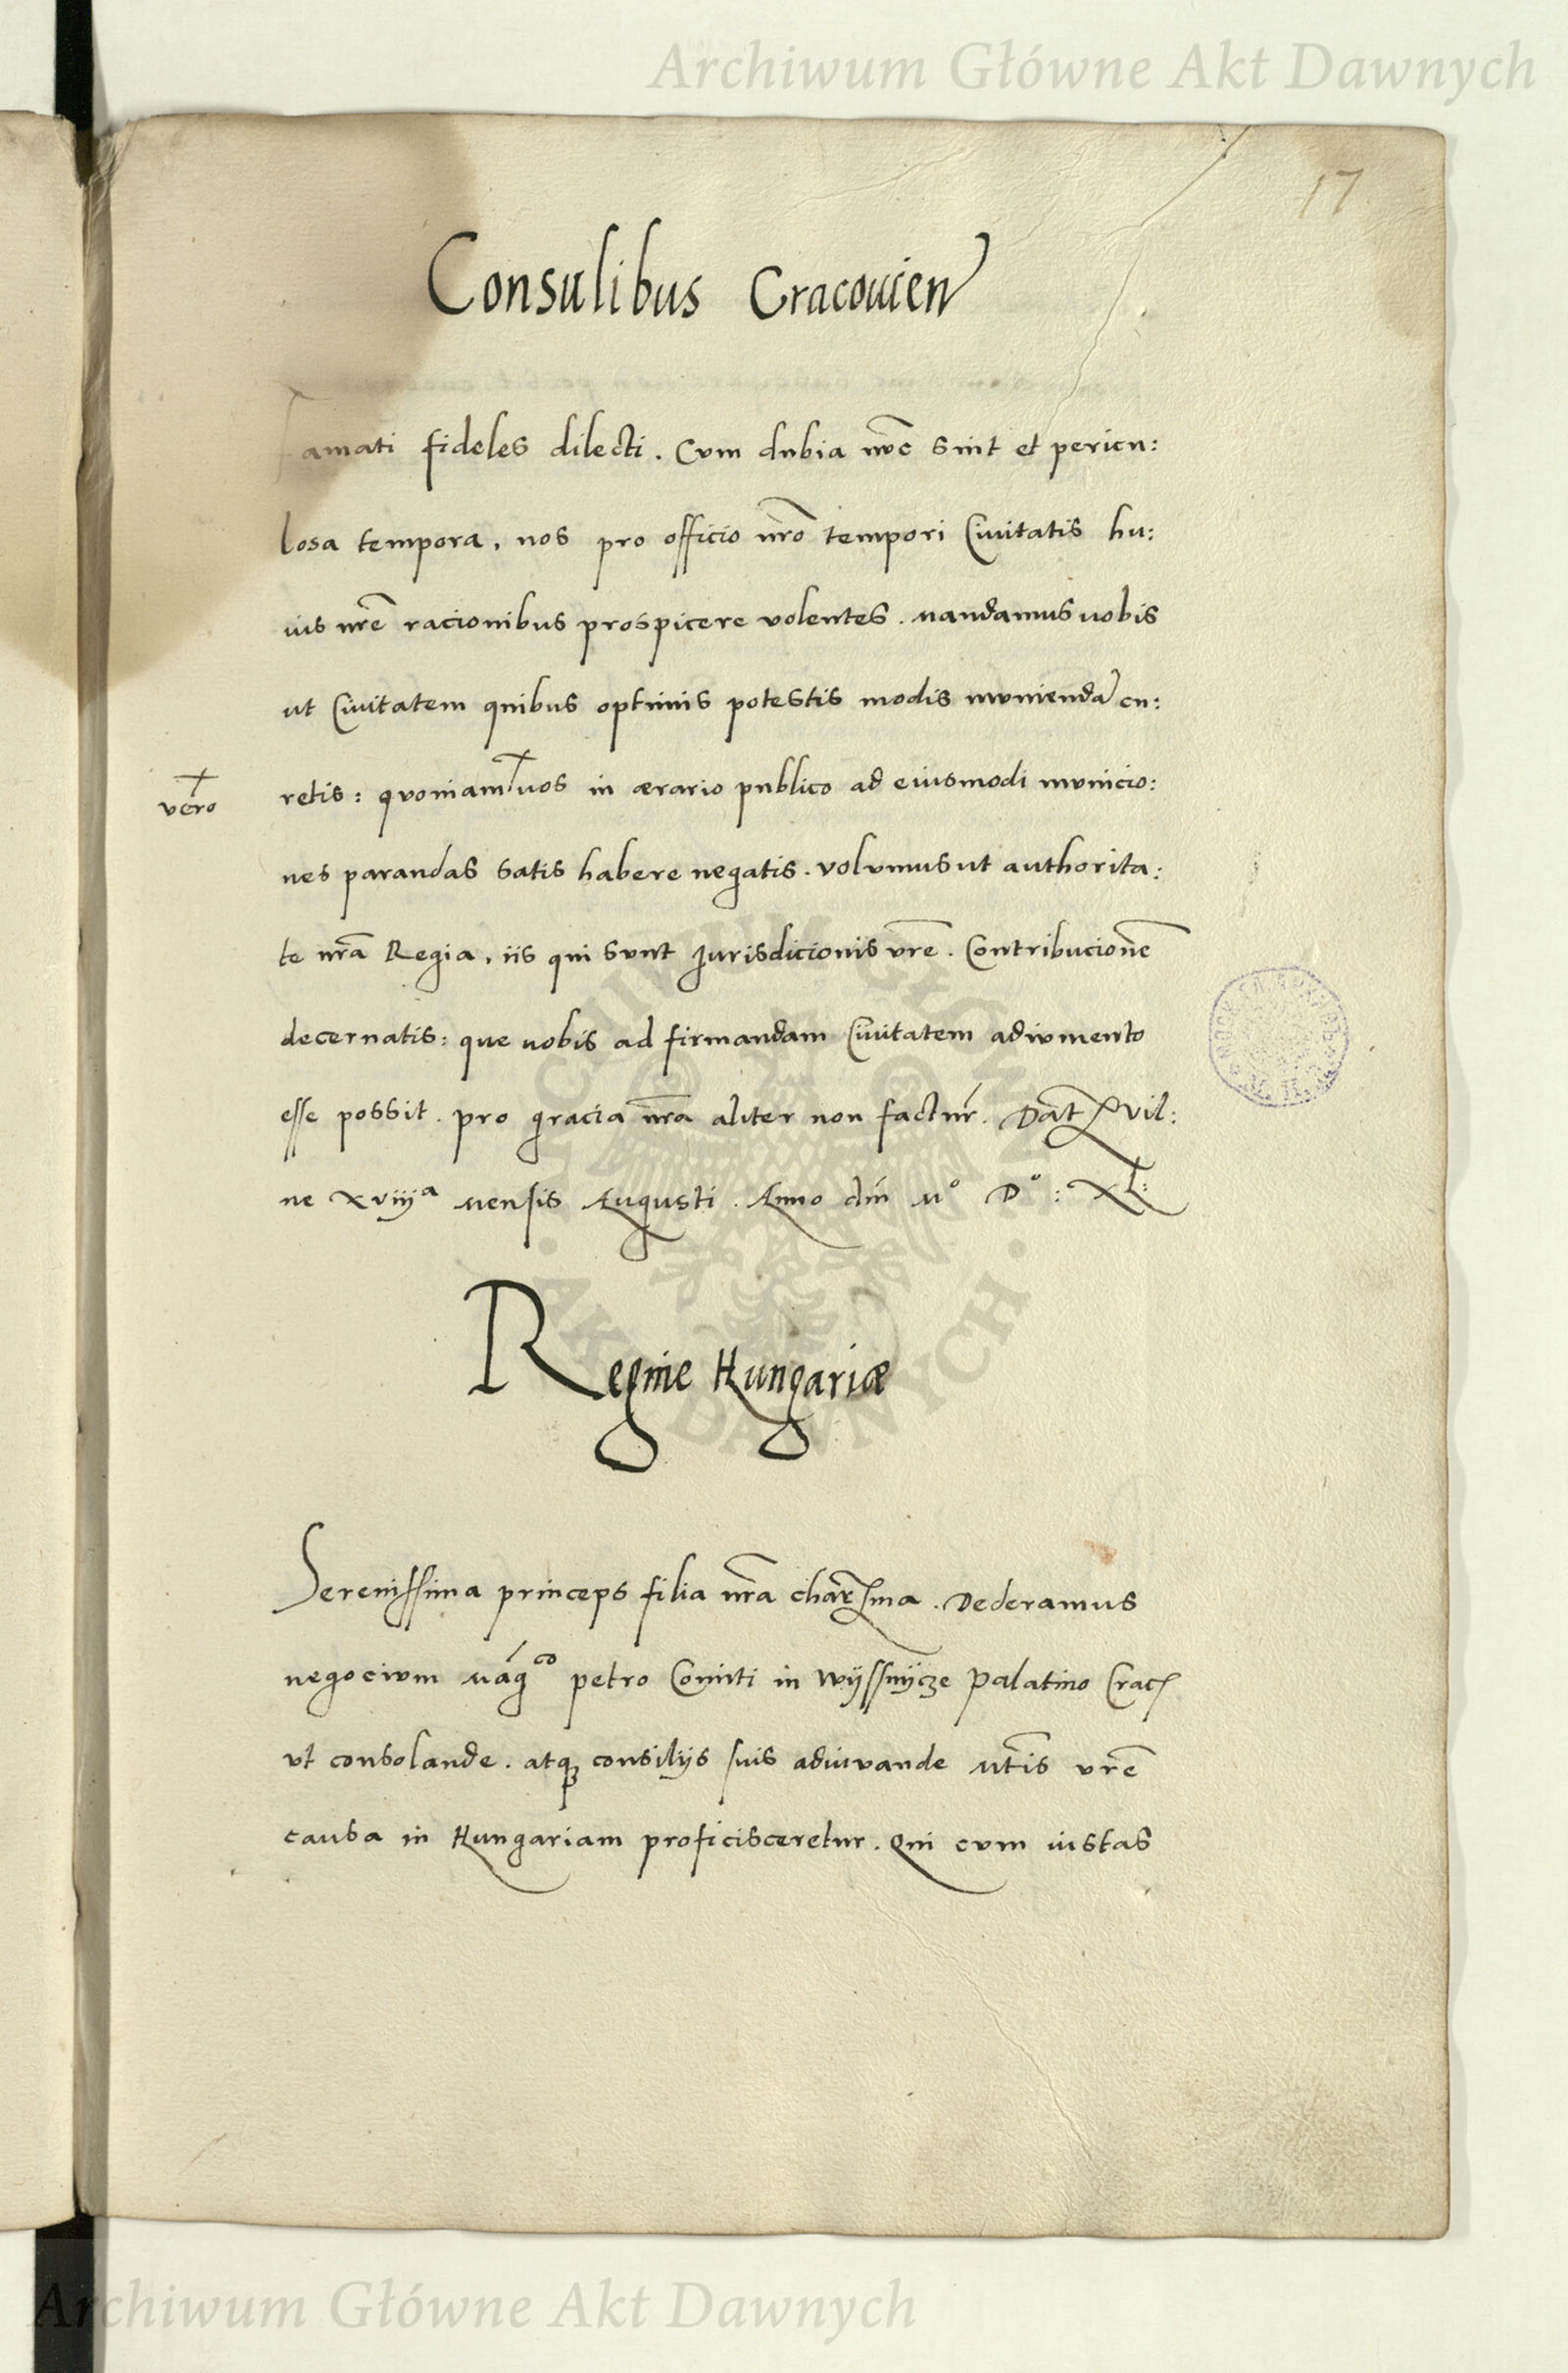 Archiwum Główne Akt Dawnych
17
Consulibus Cracouien
Famati fideles dilecti. Cum dubia nūc sint et pericu:
losa tempora, nos pro officio nr̃o tempori Ciuitatis hu:
ius nr̃e racionibus prospicere volentes. Mandamus uobis
ut Ciuitatem quibus optimis potestis modis muniendā cu:
retis: quoniam uos in ærario publico ad eiusmodi municio:
vero
nes parandas satis habere negatis. volumus ut authorita:
te nr̃a Regia, iis qui sunt Jurisdicionis vr̃e. Contribucionē
decernatis: que uobis ad firmandam Ciuitatem adiumento
esse possit. pro gracia nr̃a aliter non factur̃. Dat Vil:
ne xviijᵃ Mensis Augusti. Anno dñi Mº Dº: XL:
Regine Hungariæ
Serenissima princeps filia nr̃a char̃ma. Dederamus
negocium Mágᶜᵒ petro Comiti in Wyssnycze Palatino Crac
vt consolande. atqȝ consilijs suis adiuuande Mt̃is vr̃e
causa in Hungariam proficisceretur. Qui cum iustas
ARCHIWUM GŁÓWNE
· AKT DAWNYCH ·
Archiwum Główne Akt Dawnych